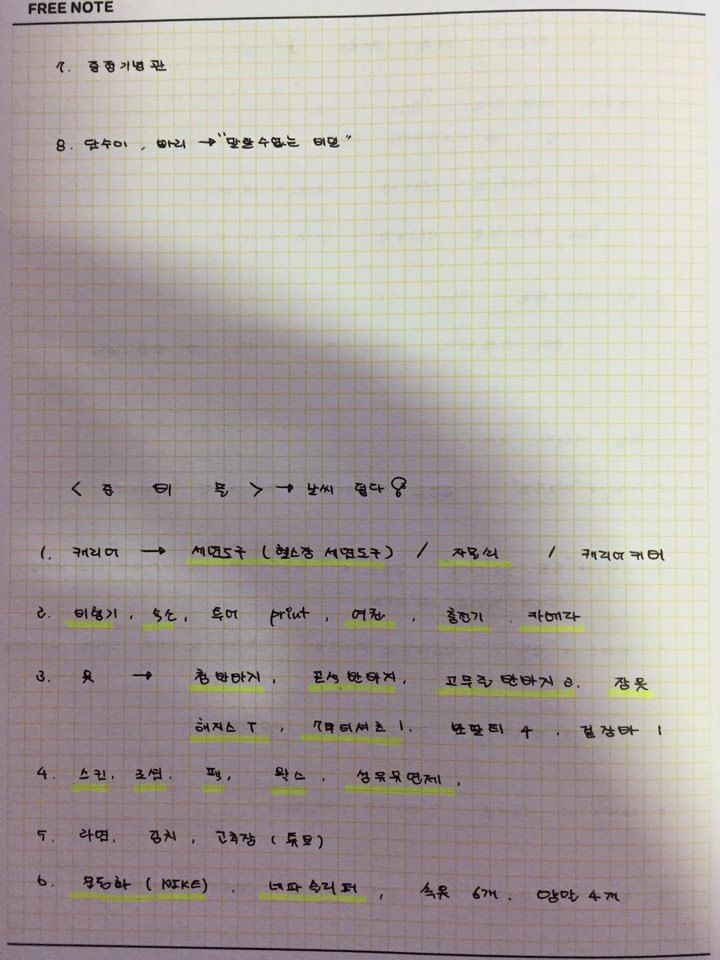 FREE NOTE
7. 중정기념관
8. 단수이, 빠리 → "말할 수 없는 비밀"
< 준 비 물 > → 날씨 덥다
1. 캐리어 → 세면도구 (헬스장 세면도구) / 자물쇠 / 캐리어커버
2. 비행기, 숙소, 투어 print, 여권, 충전기, 카메라
3. 옷 → 청반바지, 곤색반바지, 고무줄 반바지 2. 잠옷
해지스 T, 7부티셔츠 1. 반팔티 4.
4. 스킨. 로션. 팩, 왁스, 섬유유연제.
5. 라면. 김치, 고추장 (튜브)
6. 운동화 (NIKE). 네파슬리퍼, 속옷 6개. 양말 4개